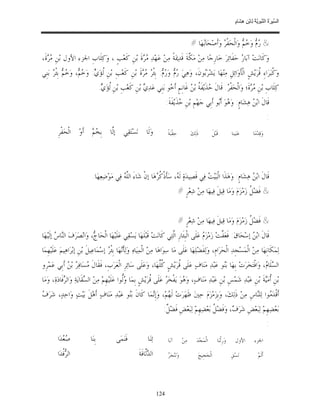 السّيرَة النّبَويّة لابْن هِشام
﴿ رُمٌّ وَخُمٌّ وَالْحَفْرُ وَأَصْحَابُهَا ﴾
وَكَانَتْ آبَارُ حَفَائِرَ خَارِجًا مِنْ مَكَّةَ قَدِيمَةً مِنْ عَهْدِ مُرَّةَ بْنِ كَعْبٍ ، وَكِلَابِ الجزء الأول بْنِ مُرَّةَ،
وَكُبَرَاءِ قُرَيْشٍ الْأَوَائِلِ مِنْهَا يَشْرَبُونَ، وَهِيَ رُمٌّ وَرُمٌّ: بِئْرُ مُرَّةَ بْنِ كَعْبِ بْنِ لُؤَيٍّ. وَخُمٌّ، وَخُمٌّ بِئْرُ بَنِي
كِلَابِ بْنِ مُرَّةَ؛ وَالْحَفْرُ. قَالَ حُذَيْفَةُ بْنُ غَانِمٍ أَخُو بَنِي عَدِيِّ بْنِ كَعْبِ بْنِ لُؤَيٍّ
قَالَ ابْنُ هِشَامٍ: وَهُوَ أَبُو أَبِي جَهْمِ بْنِ حُذَيْفَةَ:
وَقِدْمًا غنينا قَبْلَ ذَلِكَ حِقْبَةً وَلَا نَسْتَقِي إلَّا بِخُمَّ أَوْ الْحَفْرِ
قَالَ ابْنُ هِشَامٍ: وَهَذَا الْبَيْتُ فِي قَصِيدَةٍ لَهُ، سَأَذْكُرُهَا إنْ شَاءَ اللَّهُ فِي مَوْضِعِهَا.
﴿ فَضْلُ زَمْزَمَ وَمَا قِيلَ فِيهَا مِنْ شِعْرٍ ﴾
﴿ فَضْلُ زَمْزَمَ وَمَا قِيلَ فِيهَا مِنْ شِعْرٍ ﴾
قَالَ ابْنُ إسْحَاقَ: فَعَفَّتْ زَمْزَمُ عَلَى الْبِئَارِ الَّتِي كَانَتْ قَبْلَهَا يَسْقِي عَلَيْهَا الْحَاجُّ، وَانْصَرَفَ النَّاسُ إلَيْهَا
لِمَكَانِهَا مِنْ الْمَسْجِدِ الْحَرَامِ، وَلِفَضْلِهَا عَلَى مَا سِوَاهَا مِنْ الْمِيَاهِ وَلِأَنَّهَا بِئْرُ إسْمَاعِيلَ بْنِ إبْرَاهِيمَ عَلَيْهِمَا
السَّلَامُ، وَافْتَخَرَتْ بِهَا بَنُو عَبْدِ مَنَافٍ عَلَى قُرَيْشٍ كُلِّهَا، وَعَلَى سَائِرِ الْعَرَبِ، فَقَالَ مُسَافِرُ بْنُ أَبِي عَمْرِو
بْنِ أُمَيَّةَ بْنِ عَبْدِ شَمْسِ بْنِ عَبْدِ مَنَافٍ، وَهُوَ يَفْخَرُ عَلَى قُرَيْشٍ بِمَا وُلُّوا عَلَيْهِمْ مِنْ السِّقَايَةِ وَالرِّفَادَةِ، وَمَا
أَقْدَمُوا لِلنَّاسِ مِنْ ذَلِكَ، وَبِزَمْزَمَ حِينَ ظَهَرَتْ لَهُمْ، وَإِنَّمَا كَانَ بَنُو عَبْدِ مَنَافٍ أَهْلَ بَيْتٍ وَاحِدٍ، شَرَفُ
بَعْضِهِمْ لِبَعْضٍ شَرَفٌ، وَفَضْلُ بَعْضِهِمْ لِبَعْضٍ فَضْلٌ:
الجزء الأول وَرِثْنَا الْمَجْدَ مِنْ آبَا ئِنَا فَنَمَى بِنَا صُعُدَا
أَلَمْ نَسْقِ الْحَجِيجَ وَنَنْحَرْ الدَّلَّافَةَ الرُّفُدَا
124